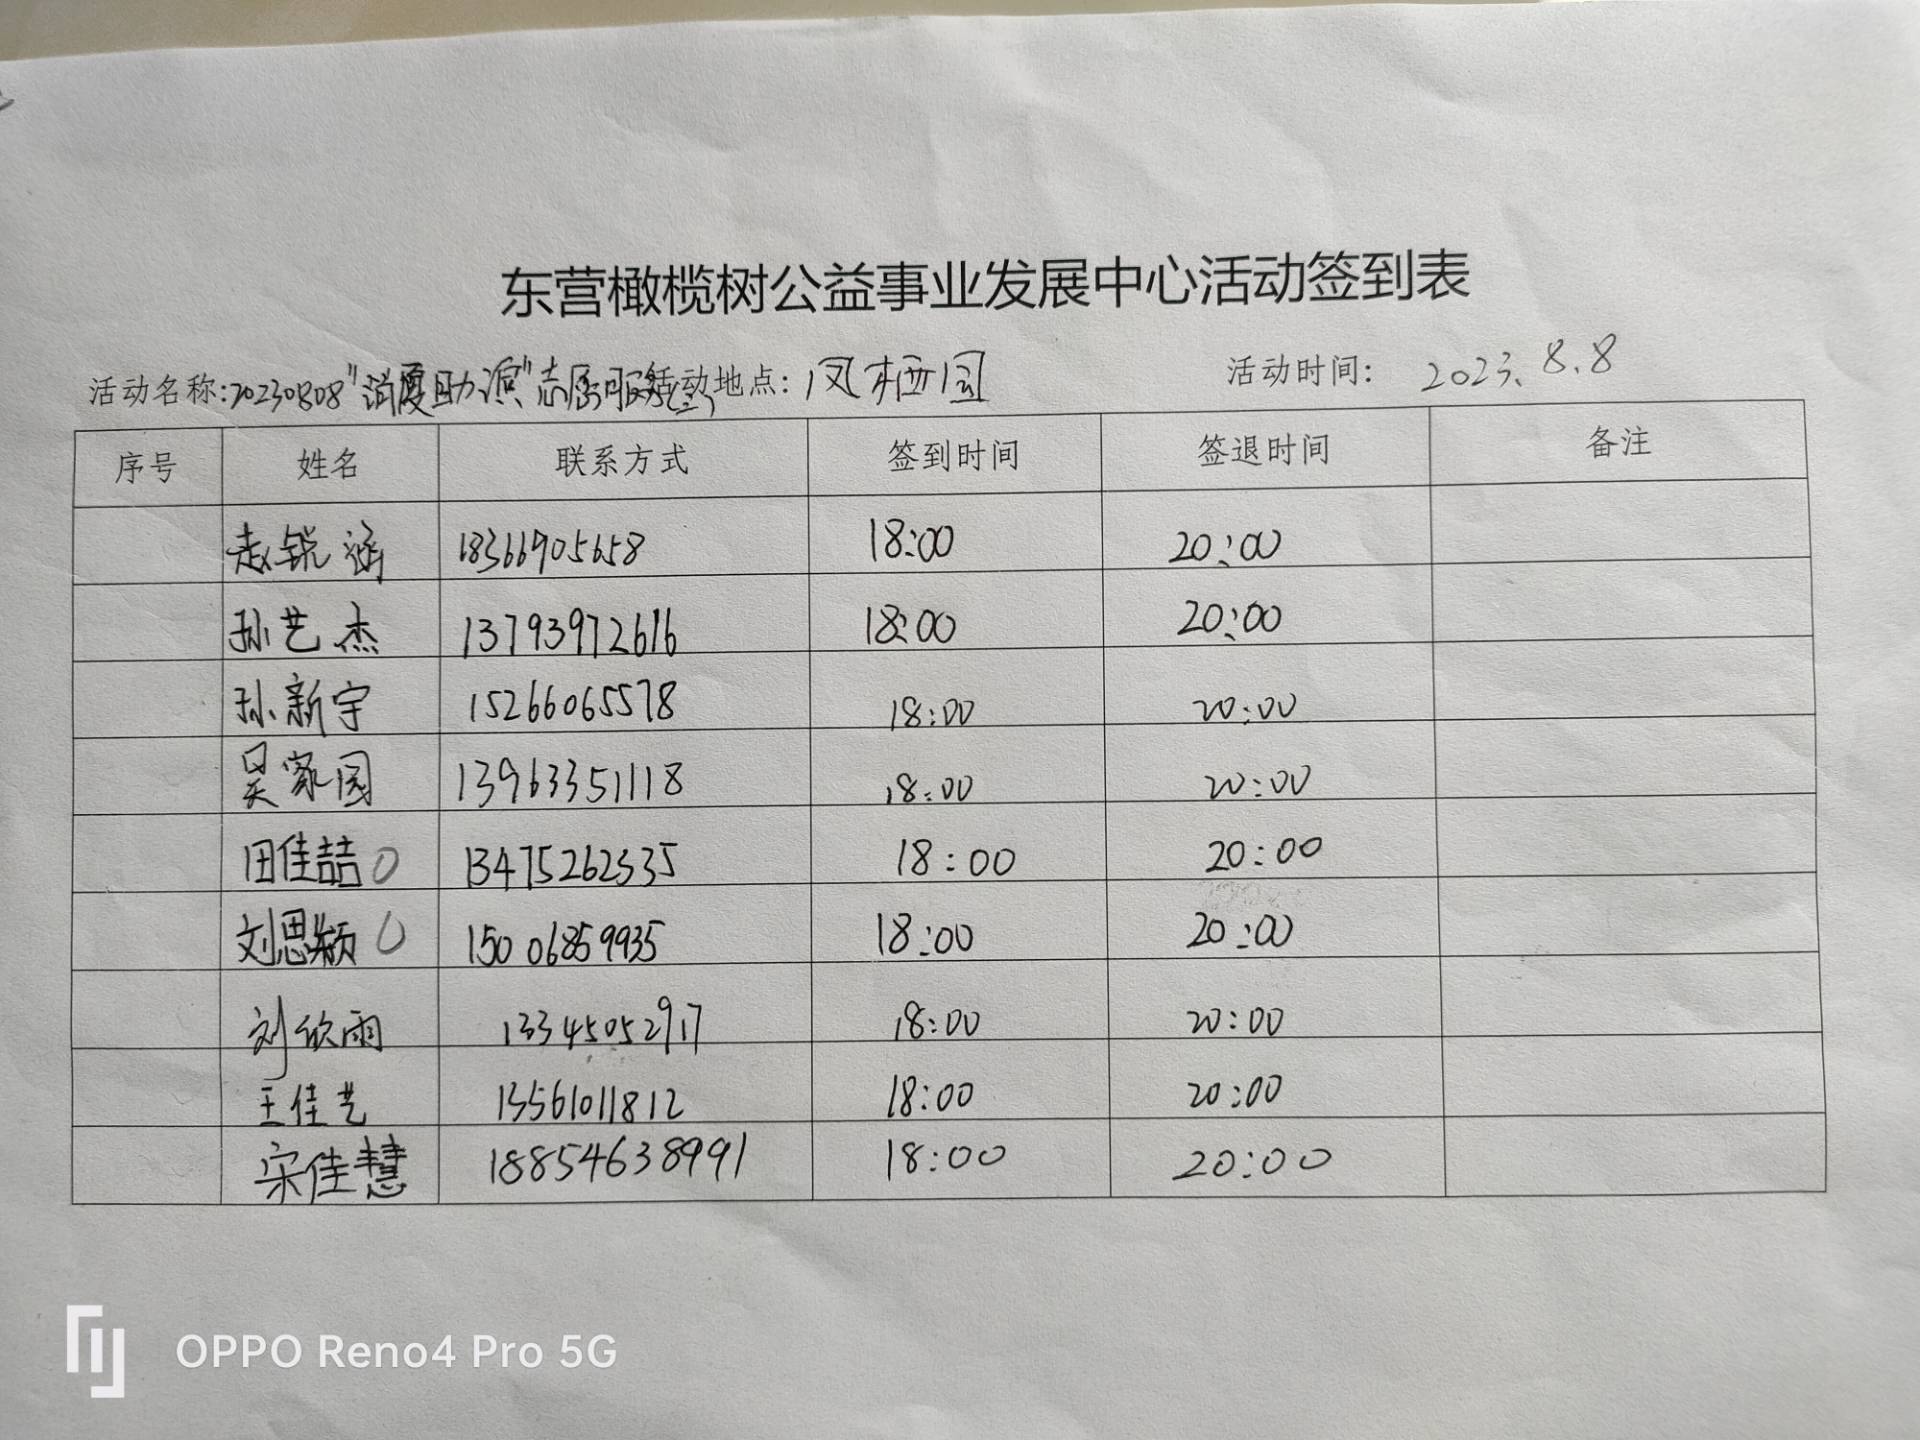 东营橄榄树公益事业发展中心活动签到表
活动名称:20230808"消夏助浜"志愿服务(二) 活动地点: 凤栖园 活动时间: 2023.8.8
序号 姓名 联系方式 签到时间 签退时间 备注
赵锐涵 18366905658 18:00 20:00
孙艺杰 13793972616 18:00 20:00
孙新宇 15266065578 18:00 20:00
吴家园 13963351118 18:00 20:00
田佳喆 0 13475262335 18:00 20:00
刘思颖 0 15006859935 18:00 20:00
刘欣雨 13345052917 18:00 20:00
王佳艺 13561011812 18:00 20:00
宋佳慧 18854638991 18:00 20:00
OPPO Reno4 Pro 5G